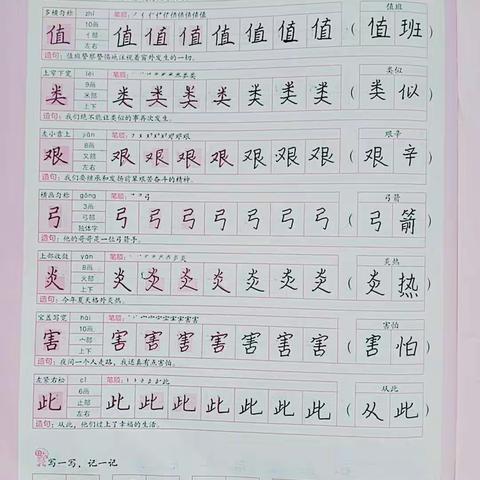 多横匀称 zhí 笔顺: 值班
值 10画 亻部 左右 值 值 值 值 值 值 值 ( 值 班 )
造句:值班警察警惕地注视着窗外发生的一切。
上窄下宽 lèi 笔顺: 类似
类 9画 米部 上下 类 类 类 类 类 类 类 ( 类 似 )
造句:我们绝不能让类似的事再次发生。
左小音上 jiān 笔顺: 艰辛
艰 8画 又部 左右 艰 艰 艰 艰 艰 艰 艰 ( 艰 辛 )
造句:我们要继承和发扬前辈艰苦奋斗的精神。
横画匀称 gōng 笔顺: 弓箭
弓 3画 弓部 独体字 弓 弓 弓 弓 弓 弓 弓 ( 弓 箭 )
造句:他的哥哥是一位弓箭手。
上部收敛 yán 笔顺: 炎热
炎 8画 火部 上下 炎 炎 炎 炎 炎 炎 炎 ( 炎 热 )
造句:今年夏天格外炎热。
宝盖写宽 hài 笔顺: 害怕
害 10画 宀部 上下 害 害 害 害 害 害 害 ( 害 怕 )
造句:夜间一个人走路,我还真有点害怕。
左紧右松 cǐ 笔顺: 从此
此 6画 止部 左右 此 此 此 此 此 此 此 ( 从 此 )
造句:从此,他们过上了幸福的生活。
写一写,记一记